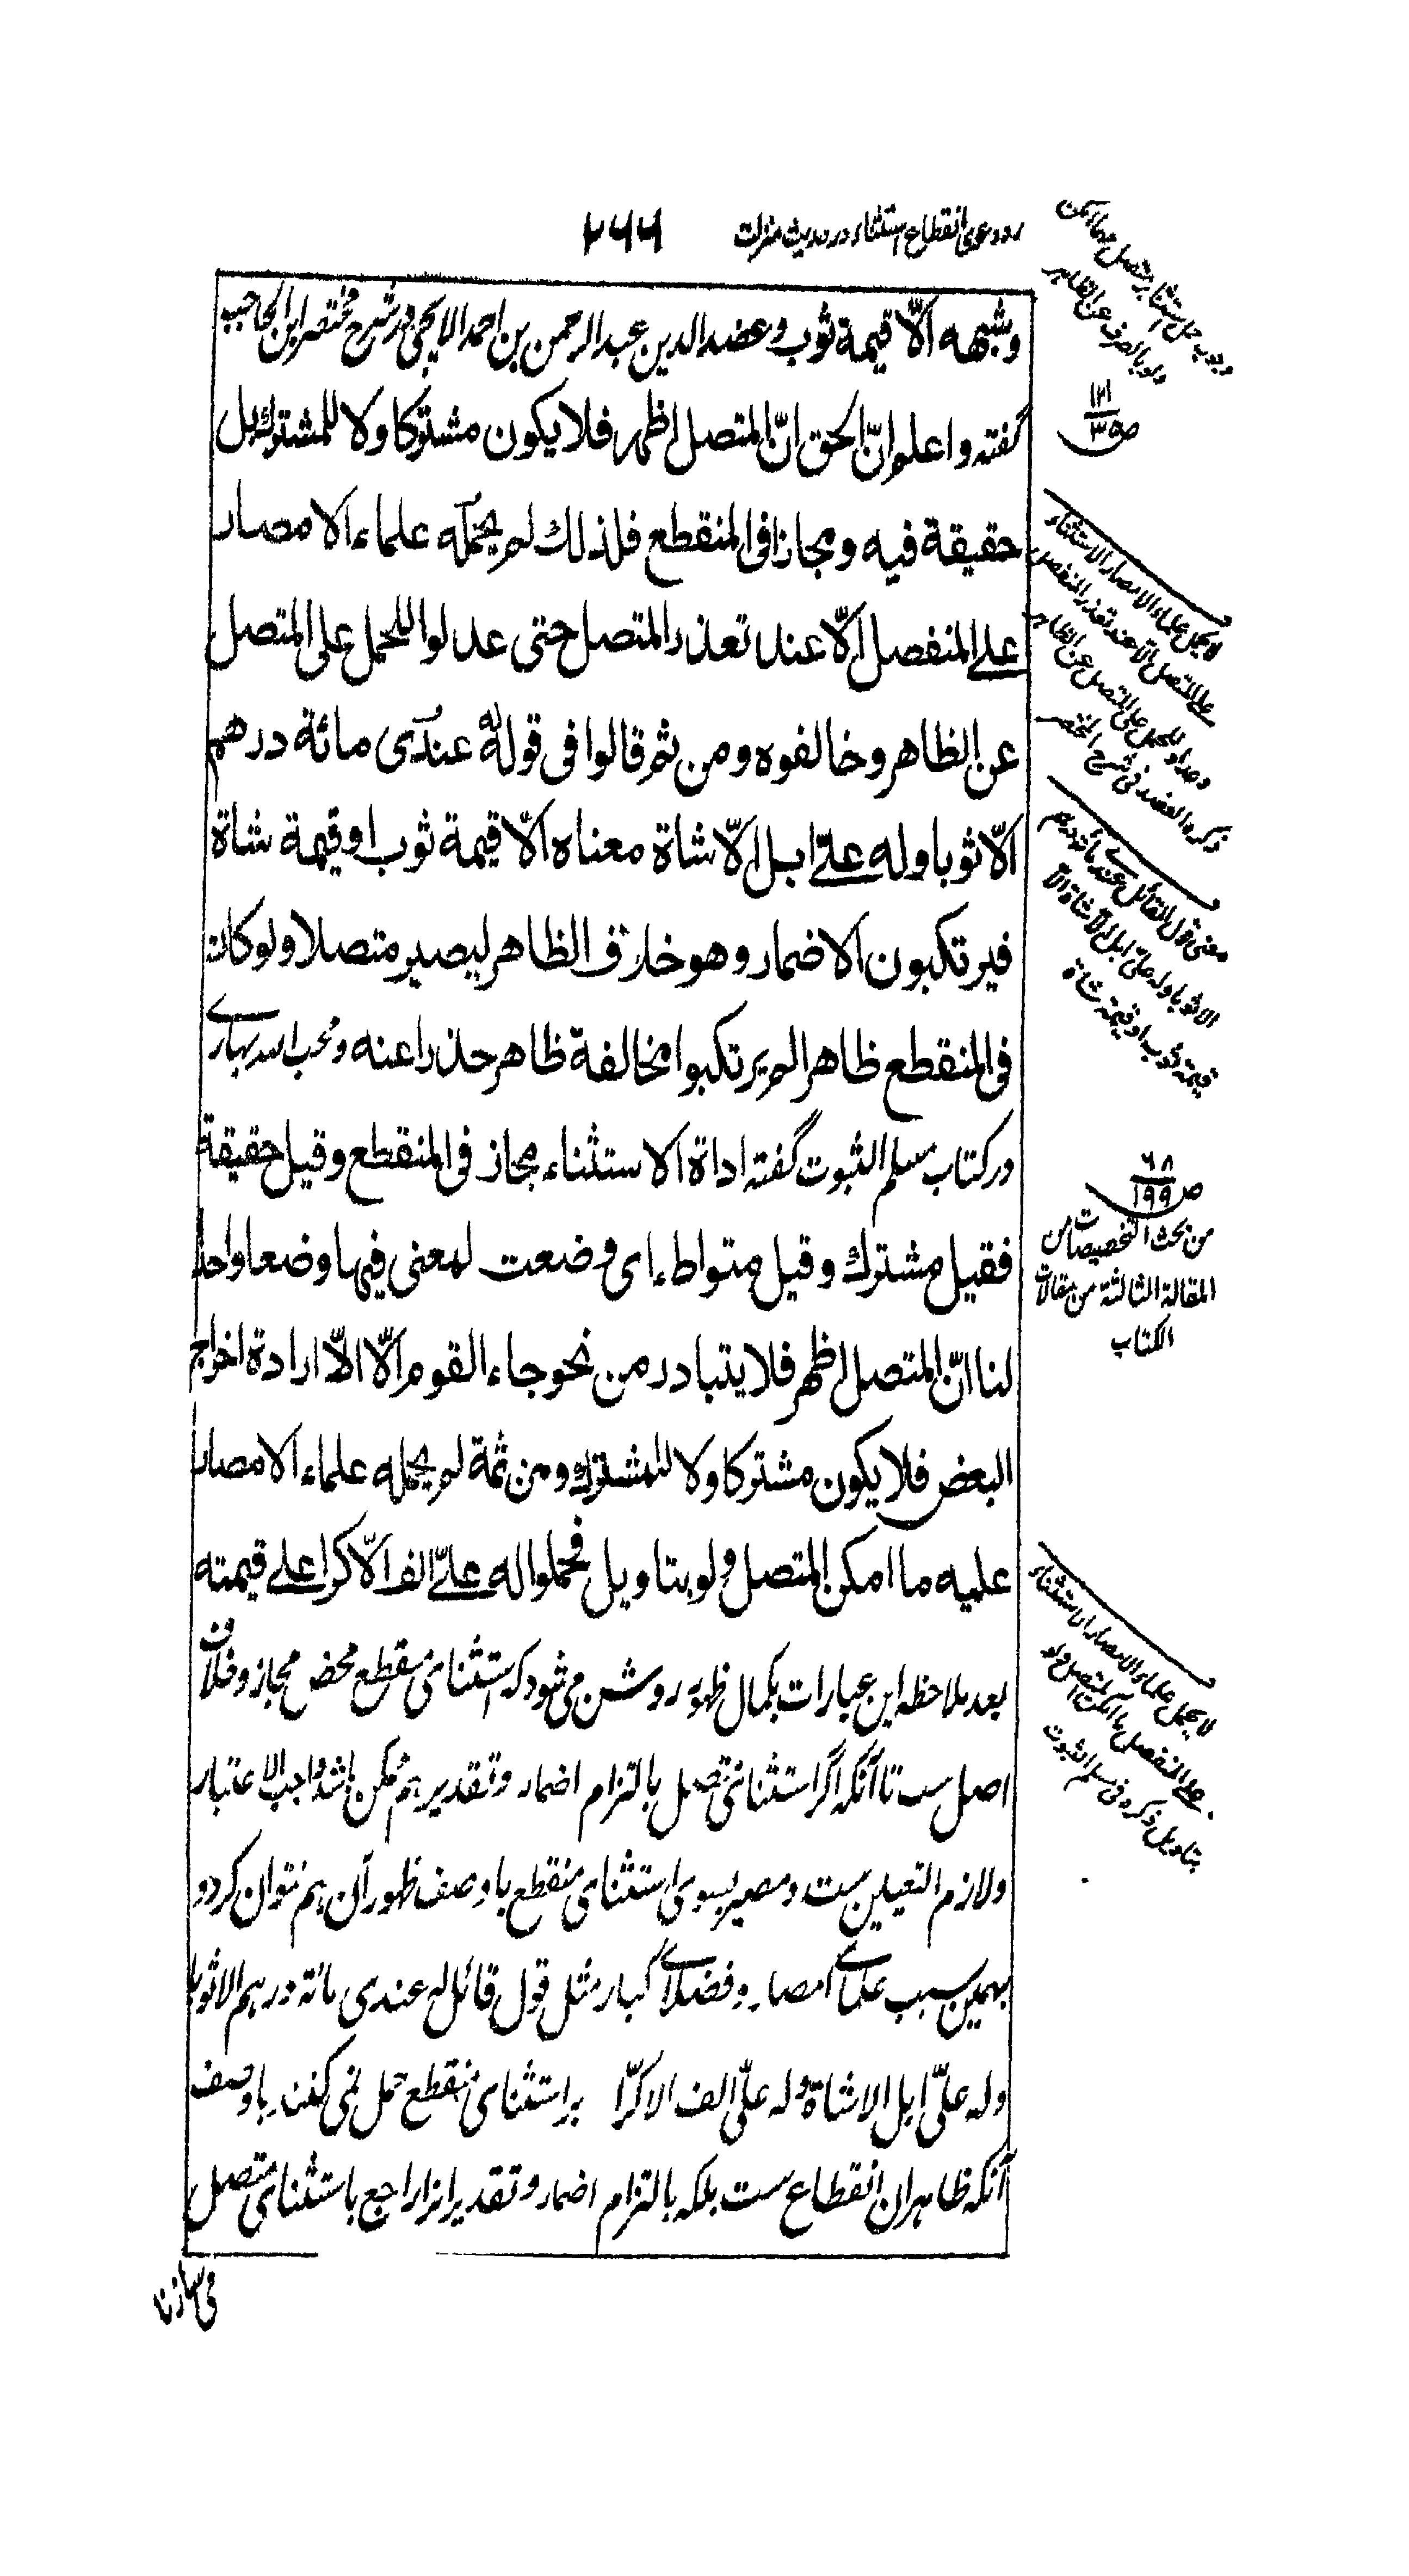 رد دعوی انقطاع استثناء در حدیث منزلت ۲۶۶
وشبهه الّا قیمة ثوب و عضد الدین عبد الرحمن بن احمد الایجی در شرح مختصر ابن الحاجب
گفته واعلم انّ الحق انّ المتصل اظهر فلا یکون مشترکا ولا للمشترک بل
حقیقة فیه ومجازا فی المنقطع فلذلك لم یحمله علماء الامصار
علی المنفصل الّا عند تعذر المتصل حتی عدلوا للحمل علی المتصل
عن الظاهر وخالفوه ومن ثم قالوا فی قوله له عندی مائة درهم
الّا ثوبا وله علیّ ابل الّا شاة معناه الّا قیمة ثوب او قیمة شاة
فیرتکبون الاضمار وهو خلاف الظاهر لیصیر متصلا ولو کان
فی المنقطع ظاهرا لم یرتکبوا مخالفة ظاهر حذرا عنه و محب الله بهاری
در کتاب مسلم الثبوت گفته اداة الاستثناء مجاز فی المنقطع وقیل حقیقة
فقیل مشترك وقیل متواطء ای وضعت لمعنی فیها وضعا واحدا
لنا انّ المتصل اظهر فلا یتبادر من نحو جاء القوم الّا الّا ارادة اخراج
البعض فلا یکون مشترکا ولا للمشترك ومن ثمة لم یحمله علماء الامصار
علیه ما امکن المتصل ولو بتاویل فحملوا له علیّ الف الّا کرا علی قیمته
بعد ملاحظه این عبارات بکمال ظهور روشن می شود که استثنای منقطع محض مجاز و خلاف
اصل ست تا آنکه اگر استثنای متصل بالتزام اضمار و تقدیر هم ممکن باشد واجب الاعتبار
ولازم التعیین ست و مصیر بسوی استثنای منقطع با وصف ظهور آن هم نتوان کرد و
بهمین سبب علمای امصار و فضلای کبار مثل قول قائل له عندی مائة درهم الا ثوبا
وله علیّ ابل الا شاة وله علیّ الف الا کرّا بر استثنای منقطع حمل نمی کنند با وصف
آنکه ظاهر ان انقطاع ست بلکه بالتزام اضمار و تقدیر انرا راجع باستثنای متصل
می سازند
وجوب حمل استثنا بر متصل مهما امکن
ولو بالصرف عن الظاهر
لا یحمل علماء الامصار الاستثناء
علی المتصل الّا عند تعذر المنفصل
وعدلوا للحمل علی المتصل عن الظاهر
ذکره العضد فی شرح المختصر
معنی قول القائل له عندی مائة درهم
الا ثوبا وله علیّ ابل الا شاة الّا
قیمة ثوب او قیمة شاة
ص ۶۸/۱۹۹
من بحث التخصیصات من
المقالة الثالثة من مقالات
الکتاب
لا یحمل علماء الامصار الاستثناء
علی المنفصل ما امکن المتصل ولو
بتاویل ذکره فی مسلم الثبوت